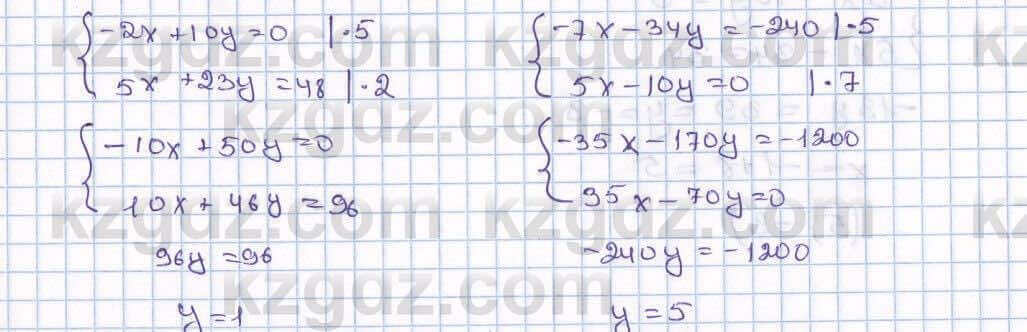 { -2x + 10y = 0 | · 5
{ 5x + 23y = 48 | · 2
{ -10x + 50y = 0
{ 10x + 46y = 96
96y = 96
y = 1
{ -7x - 34y = -240 | · 5
{ 5x - 10y = 0 | · 7
{ -35x - 170y = -1200
{ 35x - 70y = 0
-240y = -1200
y = 5
kzgdz.com
kzgdz.com
kzgdz.com
kzgdz.com
kzgdz.com
kzgdz.com